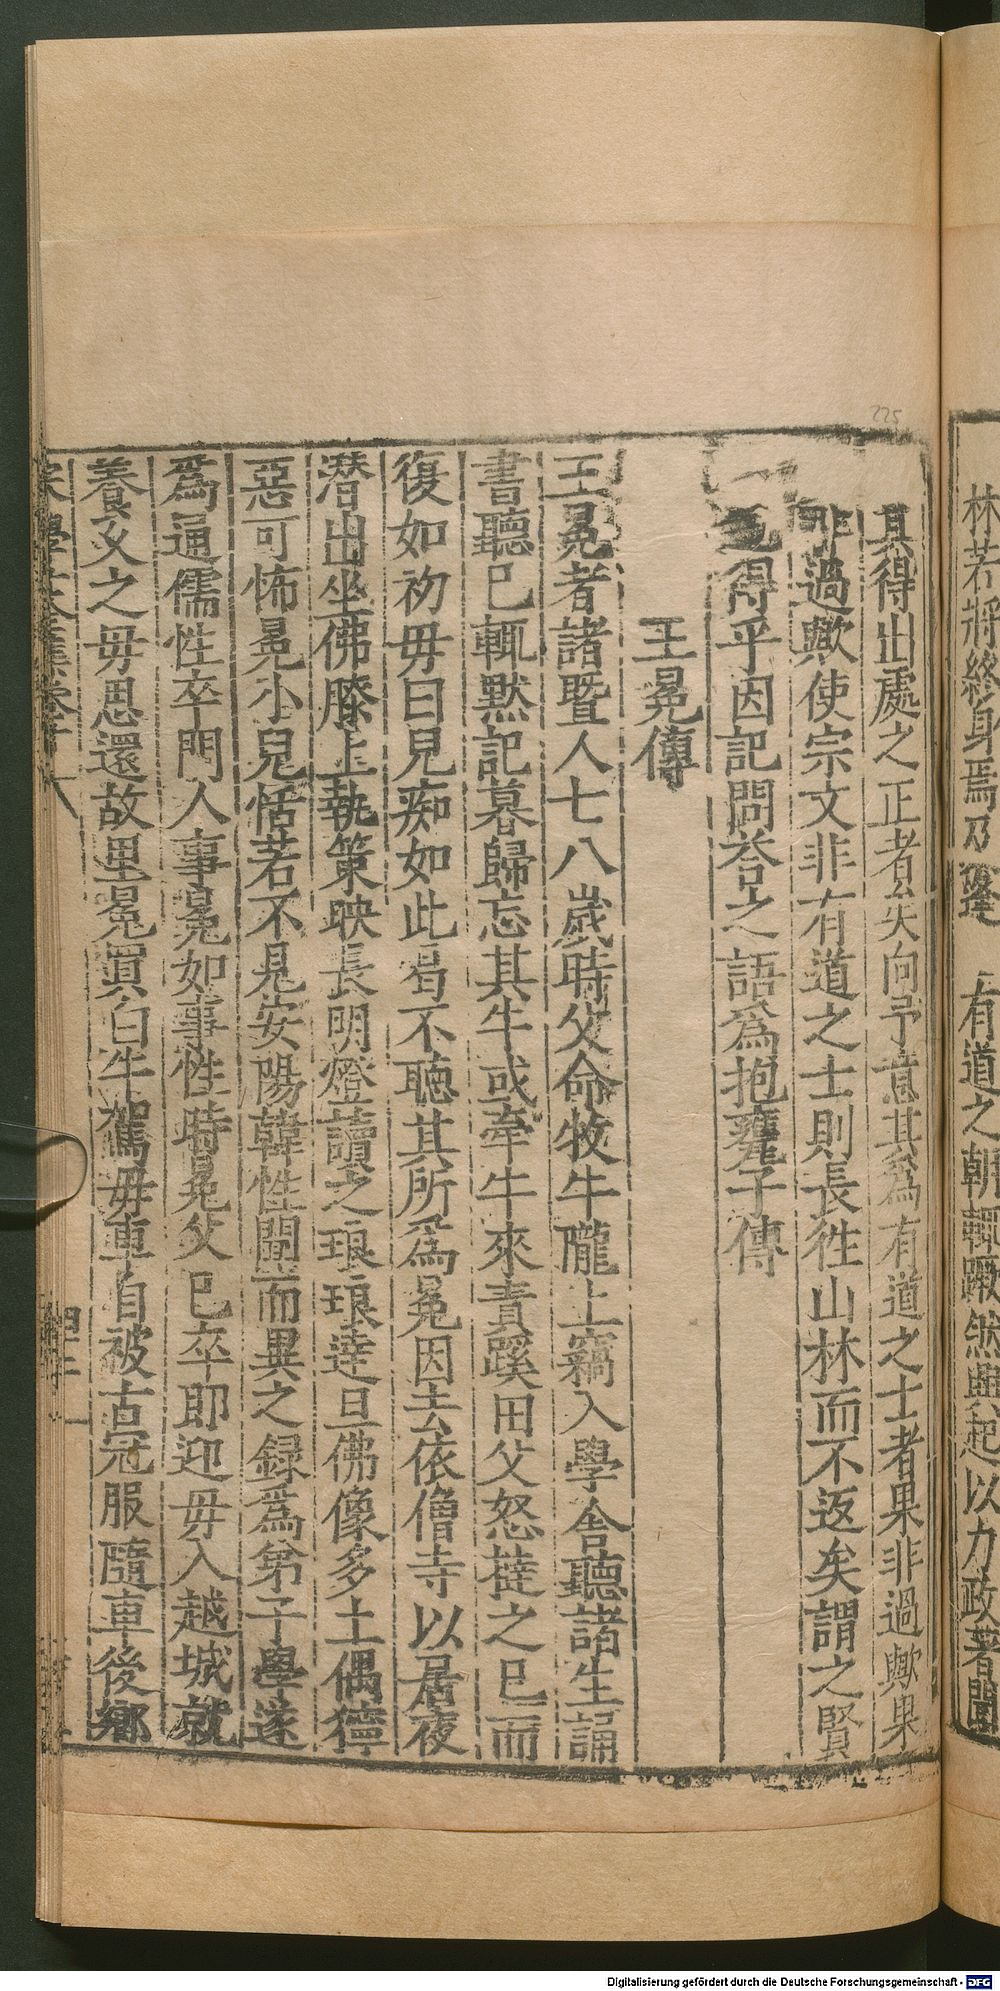 林若將終身焉乃逢 有道之朝輒蹶然興起以力政著聞
其得出處之正者矣向予意其爲有道之士者果非過歟果
非過歟使宗文非有道之士則長徃山林而不返矣謂之賢
得乎因記問荅之語爲抱甕子傳
王冕傳
王冕者諸曁人七八歲時父命牧牛隴上竊入學舍聽諸生誦
書聽已輒默記暮歸忘其牛或牽牛來責蹊田父怒撻之已而
復如初毋曰兒痴如此曷不聽其所爲冕因去依僧寺以居夜
潛出坐佛膝上執策映長明燈讀之琅琅逹旦佛像多土偶獰
惡可怖冕小兒恬若不見安陽韓性聞而異之録爲弟子學遂
爲通儒性卒門人事冕如事性時冕父已卒即迎毋入越城就
養久之毋思還故里冕買白牛駕毋車自被古冠服隨車後鄉
宋學士文集卷
225
Digitalisierung gefördert durch die Deutsche Forschungsgemeinschaft - DFG